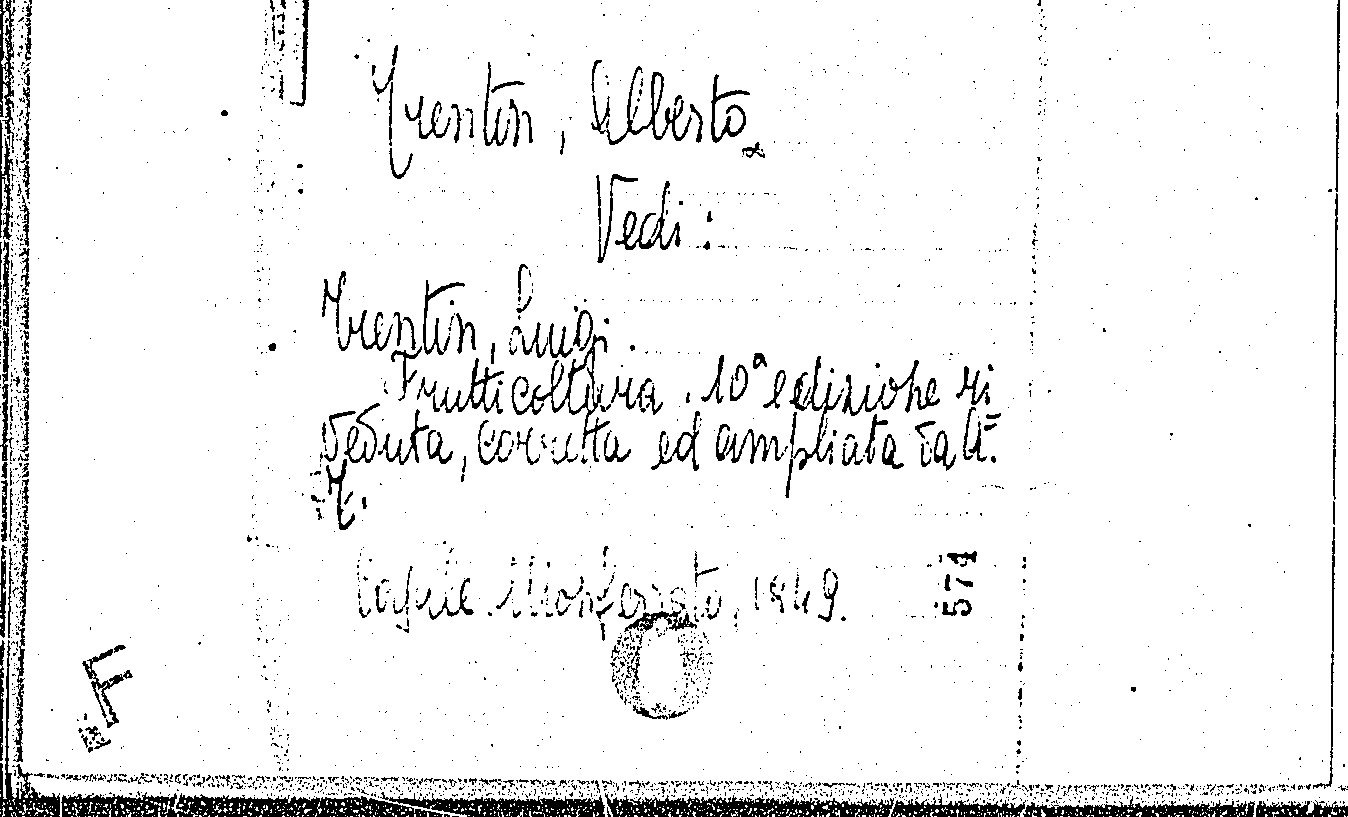 Trentin, Alberto
Vedi:
Trentin, Luigi.
Frutticoltura. 10ª edizione ri
veduta, corretta ed ampliata da A.
T.
Casale Monferrato, 1949.
571
F